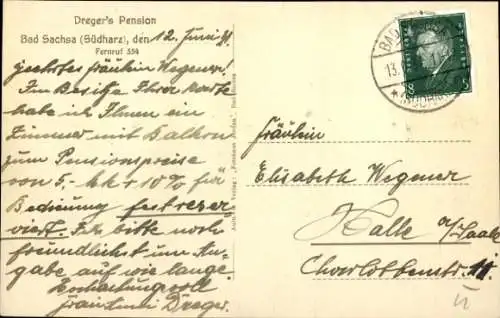 Dreger's Pension
Bad Sachsa (Südharz), den 12. Juni 31.
Fernruf 354
Geehrtes Fräulein Wegener!
Im Besitze Ihrer Karte
habe ich Ihnen ein
Zimmer mit Balkon
zum Pensionspreise
von 5,- Mk + 10% für
Bedienung fest reser-
viert. Ich bitte noch
freundlichst um An-
gabe auf wie lange.
Hochachtungsvoll
Dreger.
BAD
13.
8
8
Fräulein
Elisabeth Wegener
Halle a/Saale
Charlottenstr. 11.